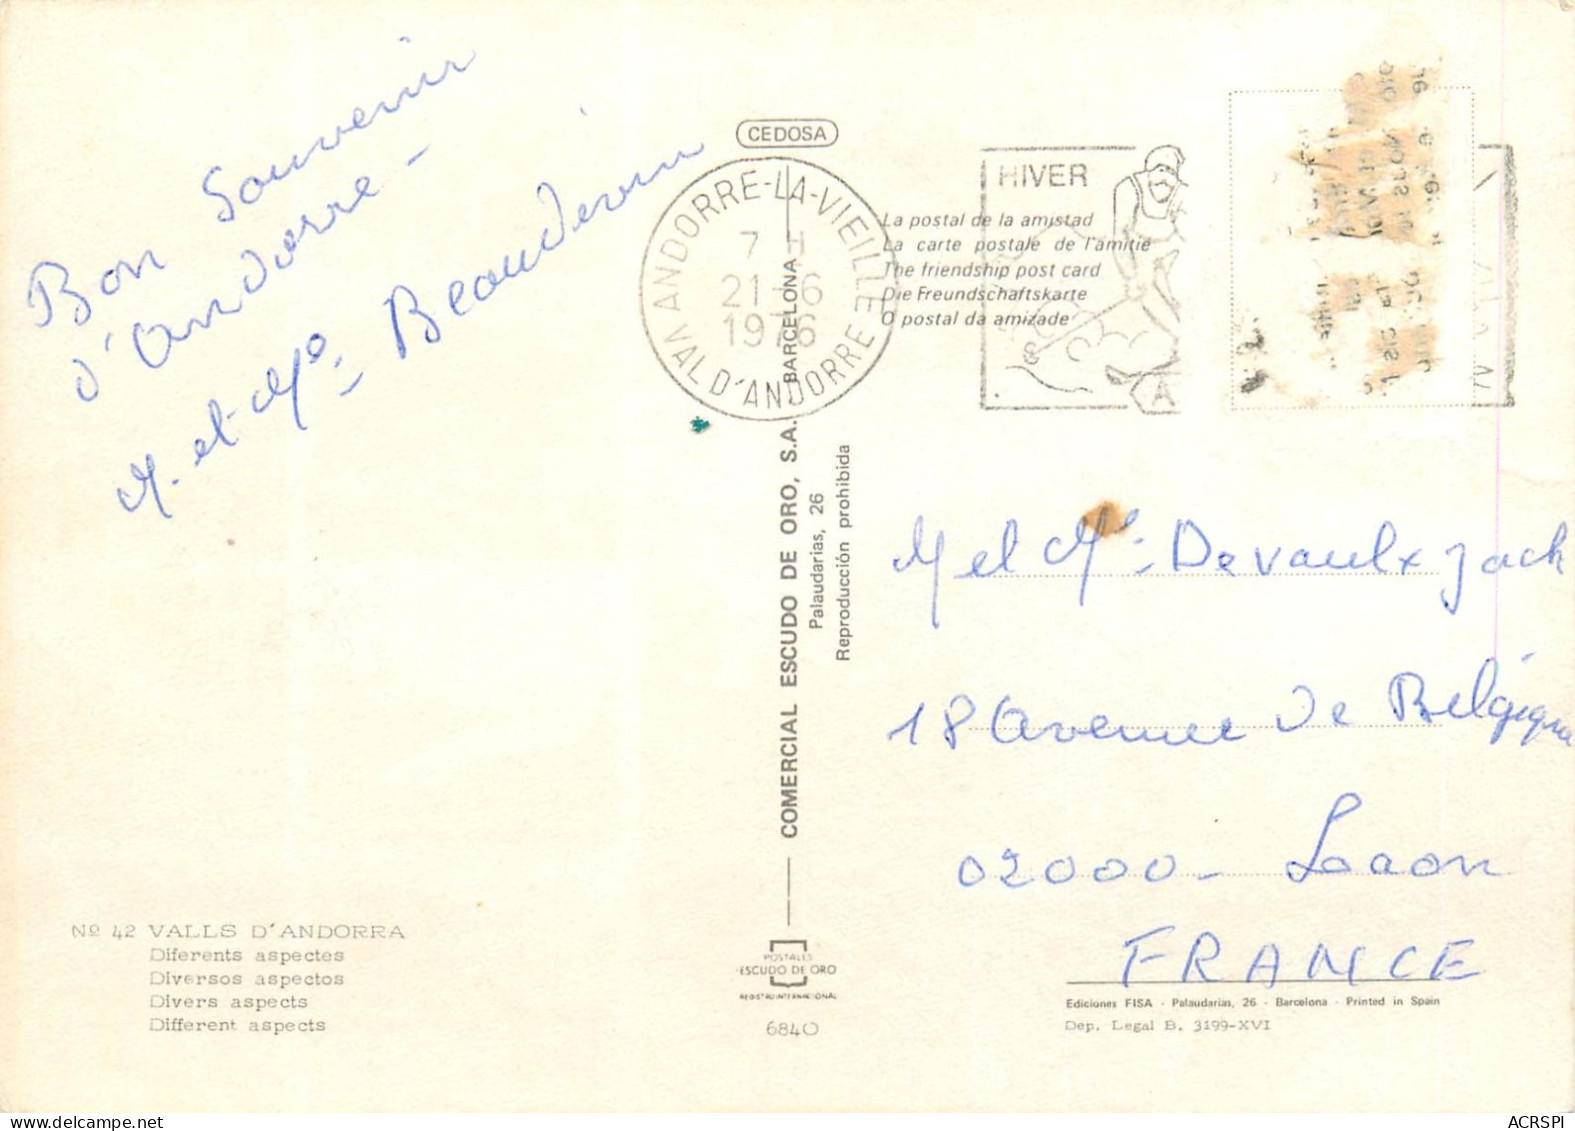 Bon Souvenir
d'Andorre -
M. et Me.
CEDOSA
ANDORRE-LA-VIEILLE
7 H
21-6
1976
VAL D'ANDORRE
HIVER
La postal de la amistad
La carte postale de l'amitié
The friendship post card
Die Freundschaftskarte
O postal da amizade
COMERCIAL ESCUDO DE ORO, S.A. BARCELONA
Palaudarias, 26
Reproducción prohibida
M et Me. Devaulx Jack
18 Avenue de Belgique
02000 - Laon
FRANCE
Nº 42 VALLS D'ANDORRA
Diferents aspectes
Diversos aspectos
Divers aspects
Different aspects
POSTALES
ESCUDO DE ORO
REGISTRO INTERNACIONAL
6840
Ediciones FISA - Palaudarias, 26 - Barcelona - Printed in Spain
Dep. Legal B. 3199-XVI
ACRSPI